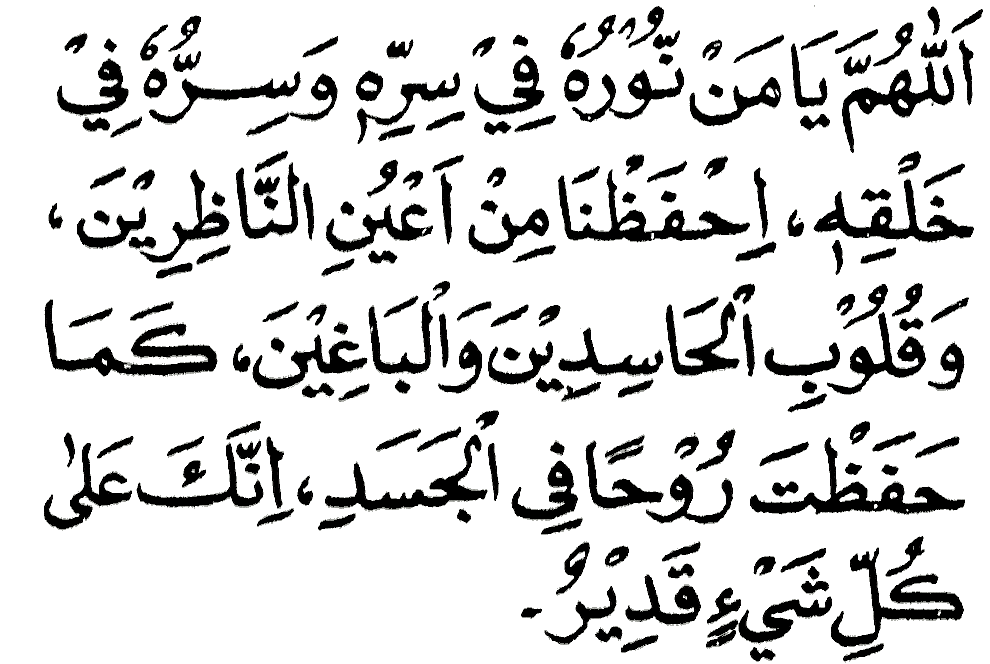 اَللّٰهُمَّ يَا مَنْ نُّوْرُهٗ فِيْ سِرِّهٖ وَسِرُّهٗ فِيْ
خَلْقِهٖ، اِحْفَظْنَا مِنْ اَعْيُنِ النَّاظِرِيْنَ،
وَقُلُوْبِ الْحَاسِدِيْنَ وَالْبَاغِيْنَ، كَمَا
حَفَظْتَ رُوْحًا فِى الْجَسَدِ، اِنَّكَ عَلىٰ
كُلِّ شَيْءٍ قَدِيْرُ۔